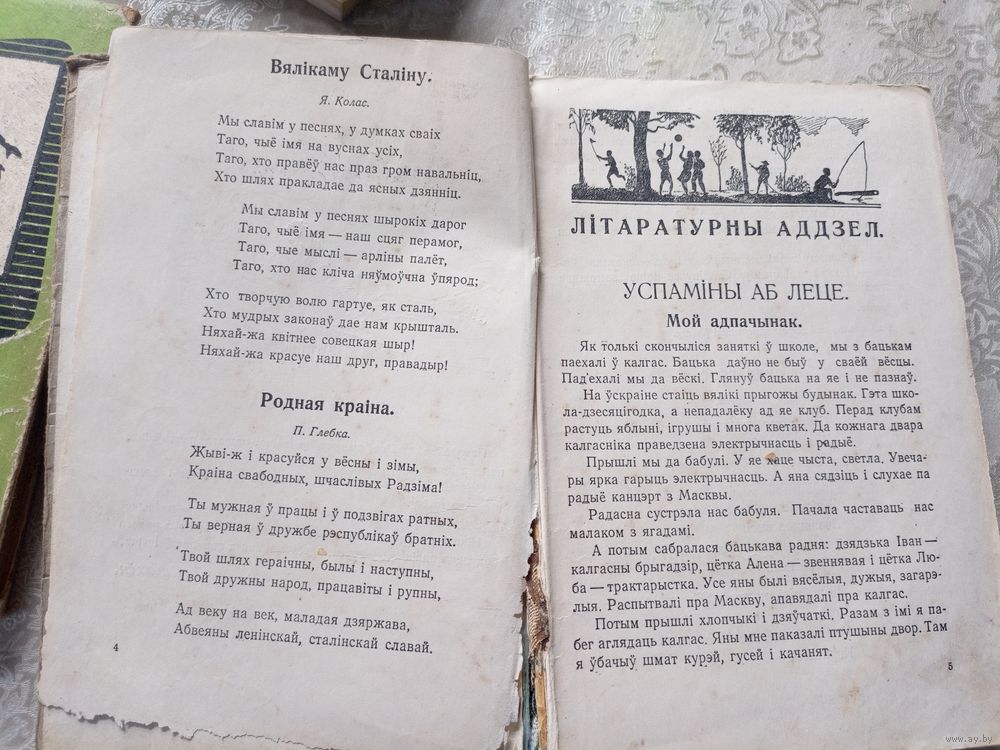 Вялікаму Сталіну.
Я. Колас.
Мы славім у песнях, у думках сваіх
Таго, чыё імя на вуснах усіх,
Таго, хто правёў нас праз гром навальніц,
Хто шлях пракладае да ясных дзянніц.
Мы славім у песнях шырокіх дарог
Таго, чыё імя — наш сцяг перамог,
Таго, чые мыслі — арліны палёт,
Таго, хто нас кліча няўмоўчна ўпярод;
Хто творчую волю гартуе, як сталь,
Хто мудрых законаў дае нам крышталь.
Няхай-жа квітнее совецкая шыр!
Няхай-жа красуе наш друг, правадыр!
Родная краіна.
П. Глебка.
Жыві-ж і красуйся у вёсны і зімы,
Краіна свабодных, шчаслівых Радзіма!
Ты мужная ў працы і ў подзвігах ратных,
Ты верная ў дружбе рэспублікаў братніх.
Твой шлях гераічны, былы і наступны,
Твой дружны народ, працавіты і рупны,
Ад веку на век, маладая дзяржава,
Абвеяны ленінскай, сталінскай славай.
4
ЛІТАРАТУРНЫ АДДЗЕЛ.
УСПАМІНЫ АБ ЛЕЦЕ.
Мой адпачынак.
Як толькі скончыліся заняткі ў школе, мы з бацькам
паехалі ў калгас. Бацька даўно не быў у сваёй вёсцы.
Пад'ехалі мы да вёскі. Глянуў бацька на яе і не пазнаў.
На ўскраіне стаіць вялікі прыгожы будынак. Гэта шко-
ла-дзесяцігодка, а непадалёку ад яе клуб. Перад клубам
растуць яблыні, ігрушы і многа кветак. Да кожнага двара
калгасніка праведзена электрычнасць і радыё.
Прышлі мы да бабулі. У яе хаце чыста, светла. Увеча-
ры ярка гарыць электрычнасць. А яна сядзіць і слухае па
радыё канцэрт з Масквы.
Радасна сустрэла нас бабуля. Пачала частаваць нас
малаком з ягадамі.
А потым сабралася бацькава радня: дзядзька Іван —
калгасны брыгадзір, цётка Алена — звеннявая і цётка Лю-
ба — трактарыстка. Усе яны былі вясёлыя, дужыя, загарэ-
лыя. Распытвалі пра Маскву, апавядалі пра калгас.
Потым прышлі хлопчыкі і дзяўчаткі. Разам з імі я па-
бег аглядаць калгас. Яны мне паказалі птушыны двор. Там
я ўбачыў шмат курэй, гусей і качанят.
5
www.ay.by